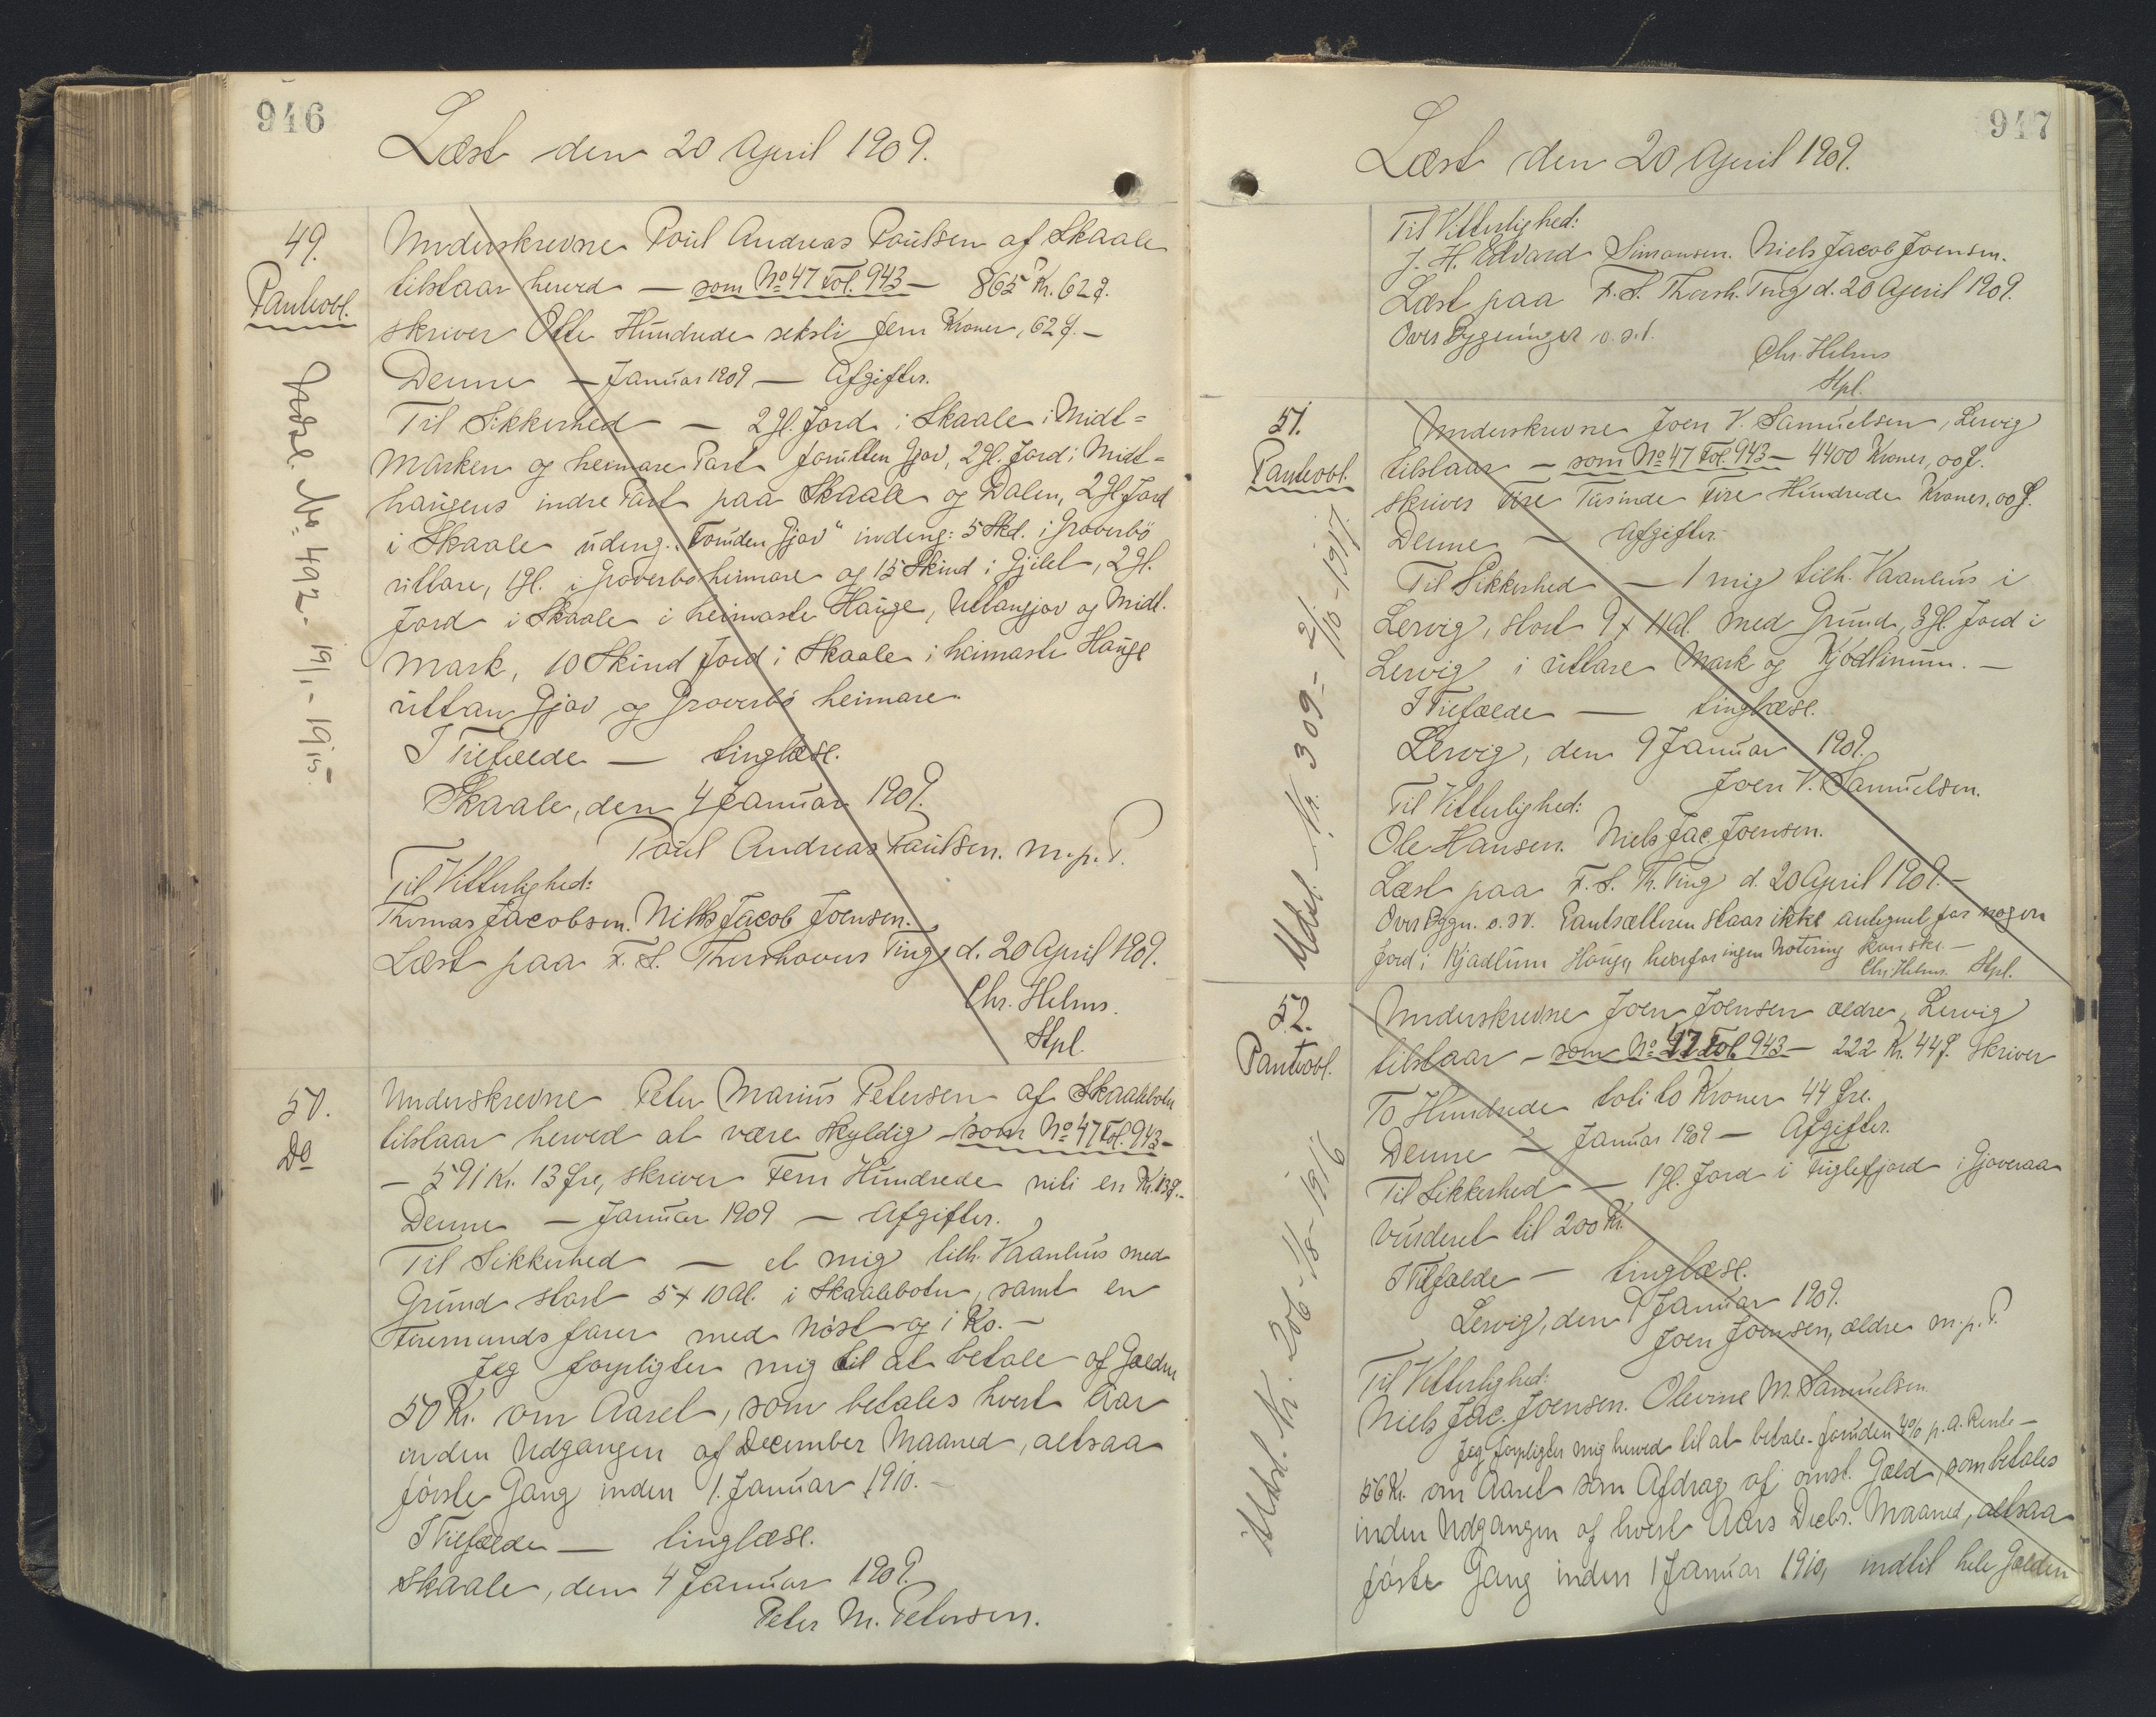 946
Læst den 20 April 1909.
49.
Pantobl.
Underskrevne Poul Andreas Poulsen af Skaale
tilstaar herved — som No 47 Fol. 943 — 865 Kr. 62 Ø.
skriver Otte Hundrede seksti fem Kroner, 62 Ø. —
Denne — Januar 1909 — Afgifter.
Til Sikkerhed — 2 gl. Jord i Skaale i Midt=
marken og heimare Part foruttan Gjov, 2 gl. Jord i Midt=
haugens indre Part paa Skaale og Dalen, 2 gl Jord
i Skaale udeng. "Foruden Gjov" indeng: 5 Skd. i Groverbö
uttare, 1 gl. i Groverbö heimare og 15 Skind i Gjilet, 2 gl.
Jord i Skaale i heimaste Hauge, Uttangjov og Midt.
mark, 10 Skind Jord i Skaale i heimaste Hauge
uttan Gjov og Groverbö heimare.
I Tilfælde — tinglæst.
Skaale, den 4 Januar 1909.
Poul Andreas Poulsen. m.p.P.
Til Vitterlighed:
Thomas Jacobsen. Niels Jacob Joensen.
Læst paa F. S. Thorshavns Ting d. 20 April 1909.
Chr. Helms.
Stpl.
No. 492 - 19/1 - 1915.
50.
Do
Underskrevne Peter Marius Petersen af Skaalebotn
tilstaar herved at være skyldig — som No 47 Fol. 943 —
— 591 Kr. 13 Øre, skriver Fem Hundrede niti en Kr. 13 Ø. —
Denne — Januar 1909 — Afgifter.
Til Sikkerhed — et mig tilh. Vaanhus med
Grund stort 5 x 10 Al. i Skaalebotn, samt en
Firemandsfarer med Nöst og 1 Ko. —
Jeg forpligter mig til at betale af Gælden
50 Kr. om Aaret, som betales hvert Aar
inden Udgangen af December Maaned, altsaa
förste Gang inden 1. Januar 1910. —
I Tilfælde — tinglæst.
Skaale, den 4 Januar 1909.
Peter M. Petersen.
947
Læst den 20 April 1909.
Til Vitterlighed:
J. H. Edvard Simonsen. Niels Jacob Joensen.
Læst paa F. S. Thorsh. Ting d. 20 April 1909.
Over Bygninger o. s. v.
Chr. Helms
Stpl.
51.
Pantobl.
Underskrevne Joen V. Samuelsen, Lervig
tilstaar — som No 47 Fol. 943 — 4400 Kroner, 00 Ø.
skriver Fire Tusinde Fire Hundrede Kroner, 00 Ø.
Denne — Afgifter.
Til Sikkerhed — 1 mig tilh. Vaanhus i
Lervig, stort 9 x 11 Al. med Grund, 3 gl. Jord i
Lervig i uttare Mark og Kjodlinum. —
I Tilfælde — tinglæst.
Lervig, den 9 Januar 1909.
Joen V. Samuelsen.
Til Vitterlighed:
Ole Hansen. Niels Jac. Joensen.
Læst paa F. S. Th. Ting d. 20 April 1909. —
Over Bygn. o. s. v. Pantsætteren staar ikke antegnet for nogen
Jord i Kjadlum Hauge, hvorfor ingen Notering kan ske. —
Chr. Helms. Stpl.
Udsl. Nr. 309 - 2/10 - 1917.
52.
Pantobl.
Underskrevne Joen Joensen ældre, Lervig
tilstaar — som No 47 Fol 943 — 222 Kr. 44 Ø. skriver
To Hundrede toti to Kroner 44 Øre.
Denne — Januar 1909 — Afgifter.
Til Sikkerhed — 1 gl. Jord i Fuglefjord i Gjoveraa
vurderet til 200 Kr.
I Tilfælde — tinglæst.
Lervig, den 9 Januar 1909.
Joen Joensen, ældre m.p.P.
Til Vitterlighed:
Niels Jac. Joensen. Olevine M. Samuelsen.
Jeg forpligter mig herved til at betale - foruden 4% p. A. Rente —
56 Kr. om Aaret som Afdrag af omst. Gæld, som betales
inden Udgangen af hvert Aars Decbr. Maaned, altsaa
förste Gang inden 1 Januar 1910, indtil hele Gælden
Udsl. Nr. 206 - 1/8 - 1916